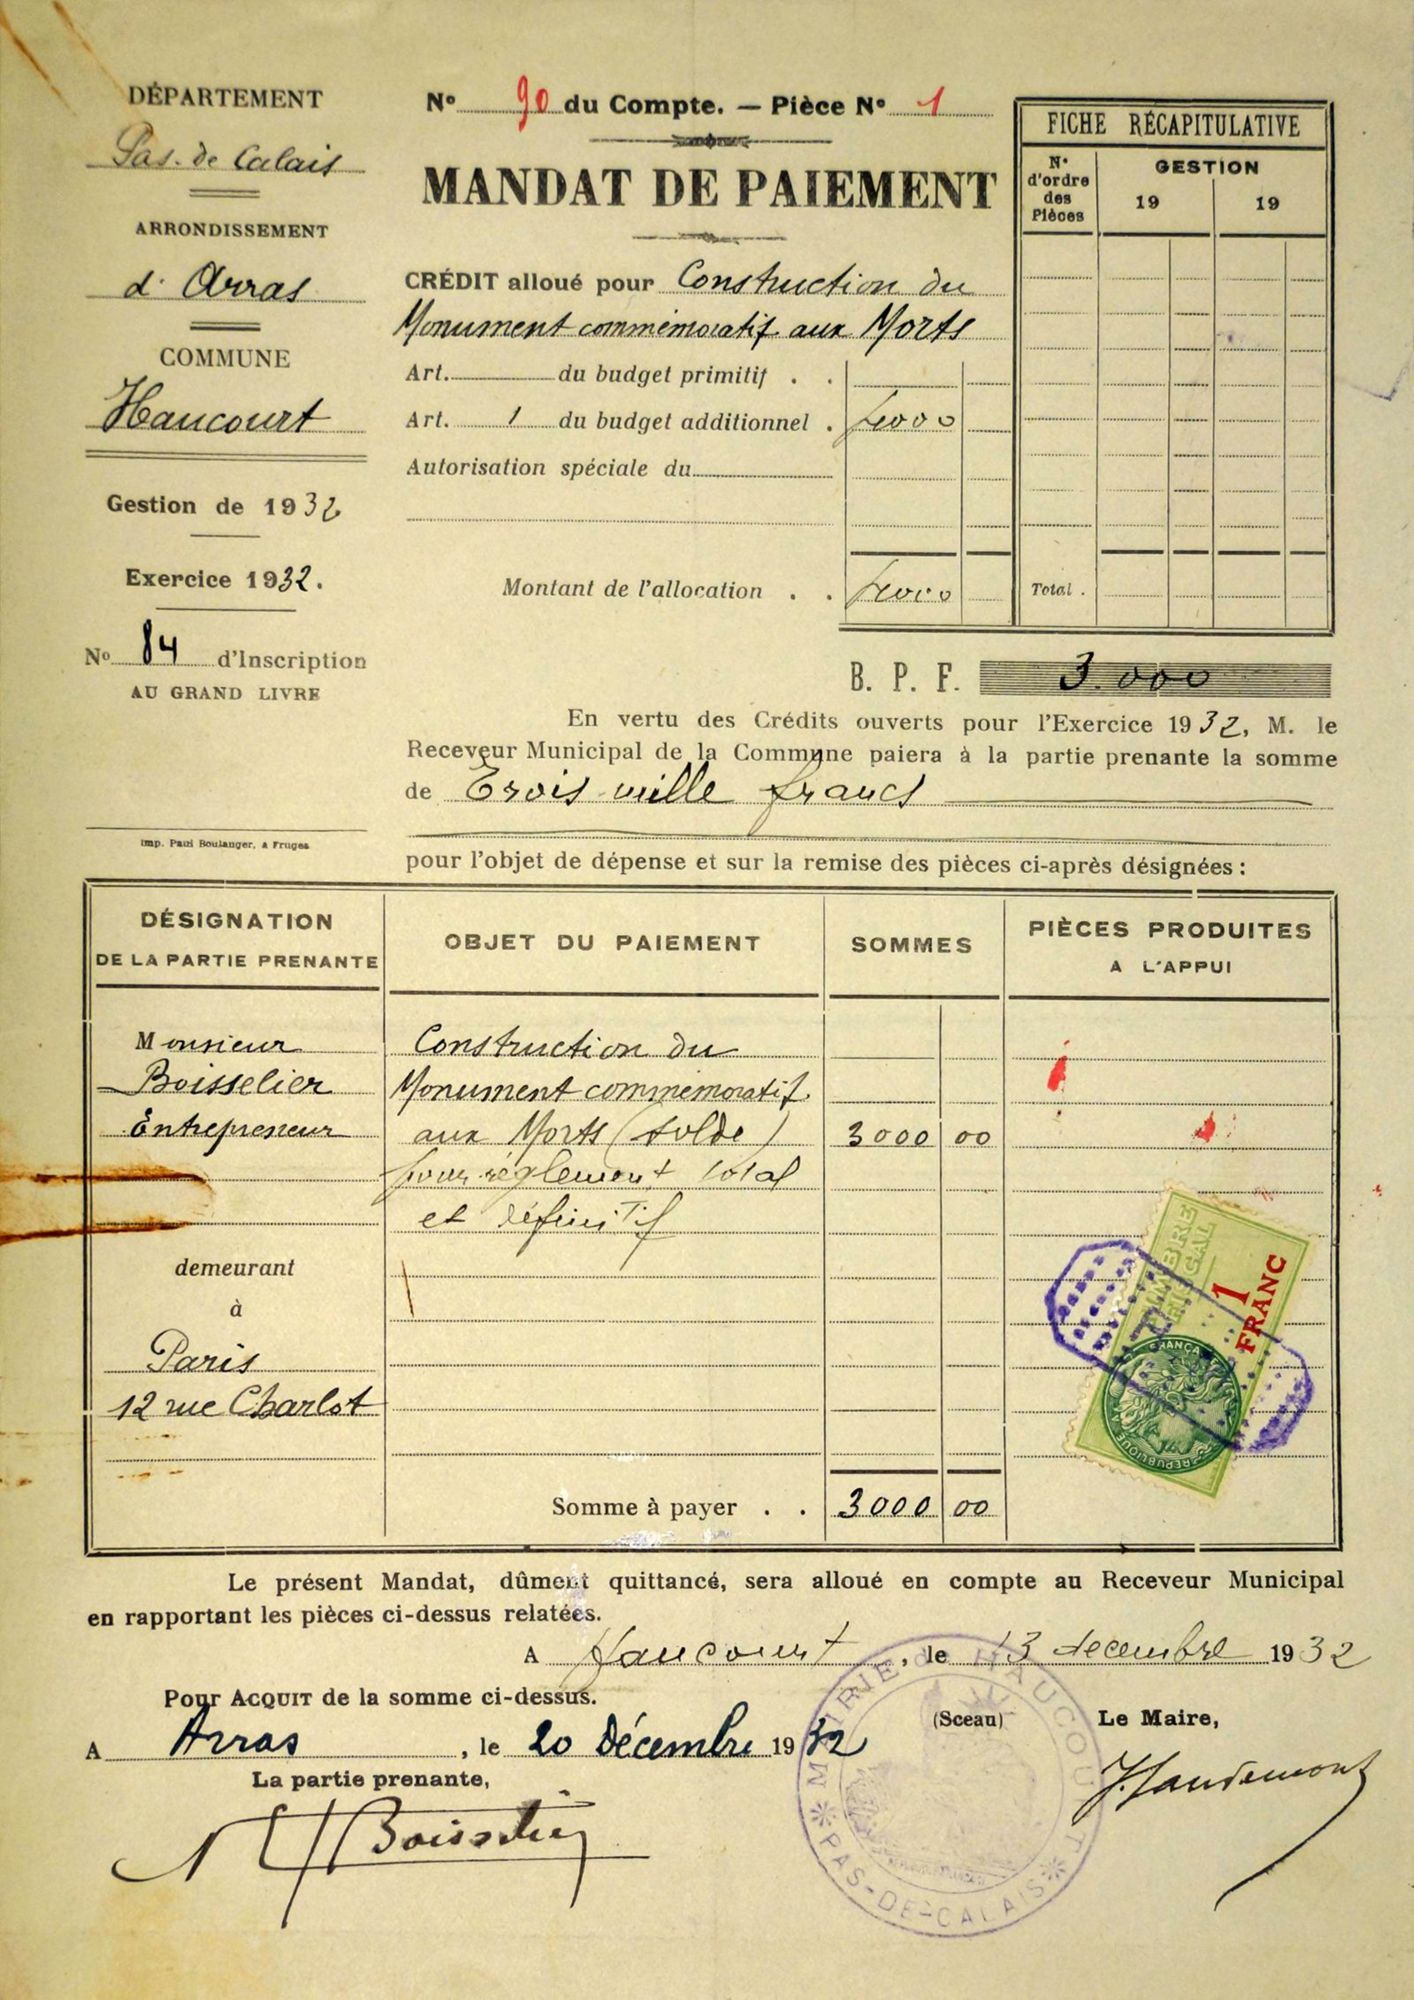 DÉPARTEMENT
Pas-de Calais
ARRONDISSEMENT
d' Arras
COMMUNE
Haucourt
Gestion de 1932
Exercice 1932.
No 84 d'Inscription
AU GRAND LIVRE
Imp. Paul Boulanger, à Fruges
No 90 du Compte. — Pièce No 1
MANDAT DE PAIEMENT
CRÉDIT alloué pour Construction du
Monument commémoratif aux Morts
Art. du budget primitif . .
Art. 1 du budget additionnel .
Autorisation spéciale du
Montant de l'allocation . .
FICHE RÉCAPITULATIVE
No d'ordre des Pièces
GESTION
19 19
Total .
B. P. F. 3.000
En vertu des Crédits ouverts pour l'Exercice 1932, M. le
Receveur Municipal de la Commune paiera à la partie prenante la somme
de Trois mille francs
pour l'objet de dépense et sur la remise des pièces ci-après désignées :
DÉSIGNATION
DE LA PARTIE PRENANTE
OBJET DU PAIEMENT
SOMMES
PIÈCES PRODUITES
A L'APPUI
Monsieur
Boisselier
Entrepreneur
demeurant
à
Paris
12 rue Charlot
Construction du
Monument commémoratif
aux Morts (solde) 3000 00
pour règlement total
et définitif
Somme à payer . . 3000 00
TIMBRE
FISCAL
1
FRANC
RÉPUBLIQUE FRANÇAISE
Le présent Mandat, dûment quittancé, sera alloué en compte au Receveur Municipal
en rapportant les pièces ci-dessus relatées.
A Haucourt, le 13 decembre 1932
Pour ACQUIT de la somme ci-dessus.
A Arras, le 20 Décembre 1932
La partie prenante,
Boisselier
(Sceau)
Le Maire,
MAIRIE d' HAUCOURT
PAS-DE-CALAIS